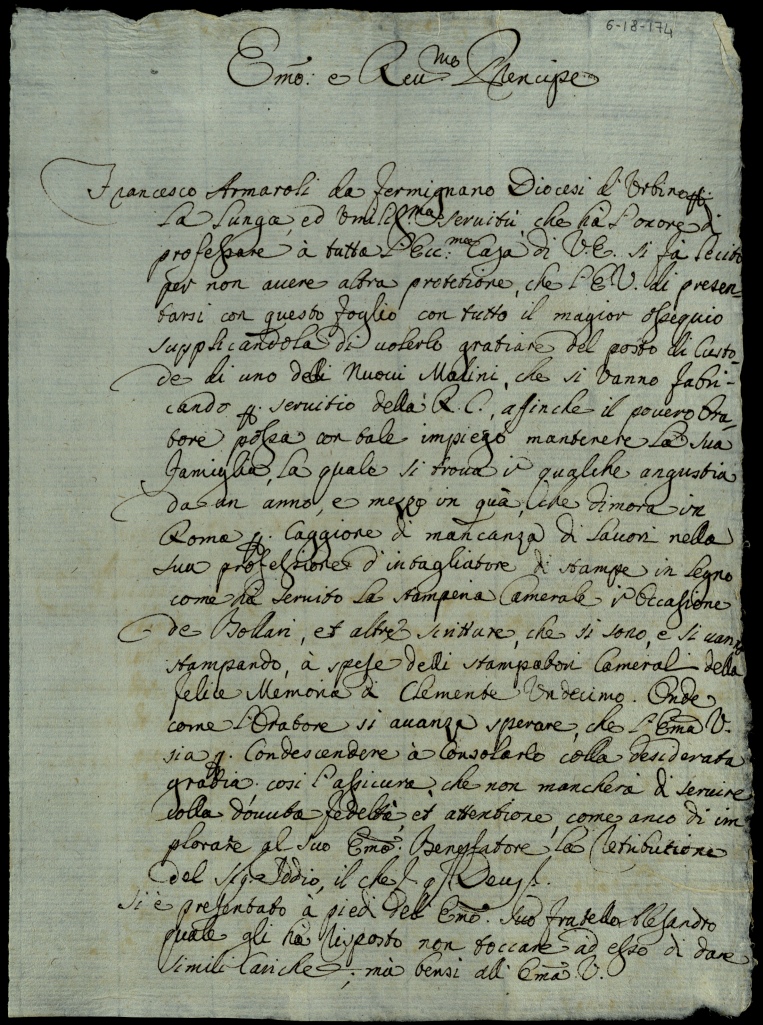 6-18-174
Emo: e Reu.mo Prencipe
Francesco Armaroli da Fermignano Diocesi d'Urbino p.
La Lunga, ed Umiliss.ma servitù, che hà l'onore di
professare à tutta l'Ecc.ma Casa di V.E. si fà lecito
per non auere altra protetione, che l'E.V. di presen-
tarsi con questo foglio con tutto il magior ossequio
supplicandola di uolerlo gratiare del posto di Custo-
de di uno delli Nuoui Molini, che si vanno fabri-
cando p. seruitio della R. C., affinche il pouero Ora-
tore possa con tale impiego mantenere la sua
famiglia, la quale si troua in qualche angustia
da un anno, e mezzo in quà, che dimora in
Roma p. Caggione di mancanza di lauori nella
sua professione d'intagliatore di stampe in legno
come hà seruito la stamperia Camerale in Occasione
de Bollari, et altre scritture, che si sono, e si uano
stampando, à spese delli stampatori Camerali della
felice Memoria di Clemente Undecimo. Onde
come l'Oratore si auanza sperare, che l'Ema V.
sia p. Condescendere à Consolarlo colla desiderata
gratia. così l'assicura, che non mancherà di seruire
colla douuta fedeltà, et attentione, come anco di im
plorare al suo Emo. Benefattore la Retributione
del Sig. Iddio, il che
si è presentato à piedi dell'Emo. suo fratello Alesandro
quale gli hà Risposto non toccare ad esso di dare
simili Cariche, mà bensi all'Ema V.